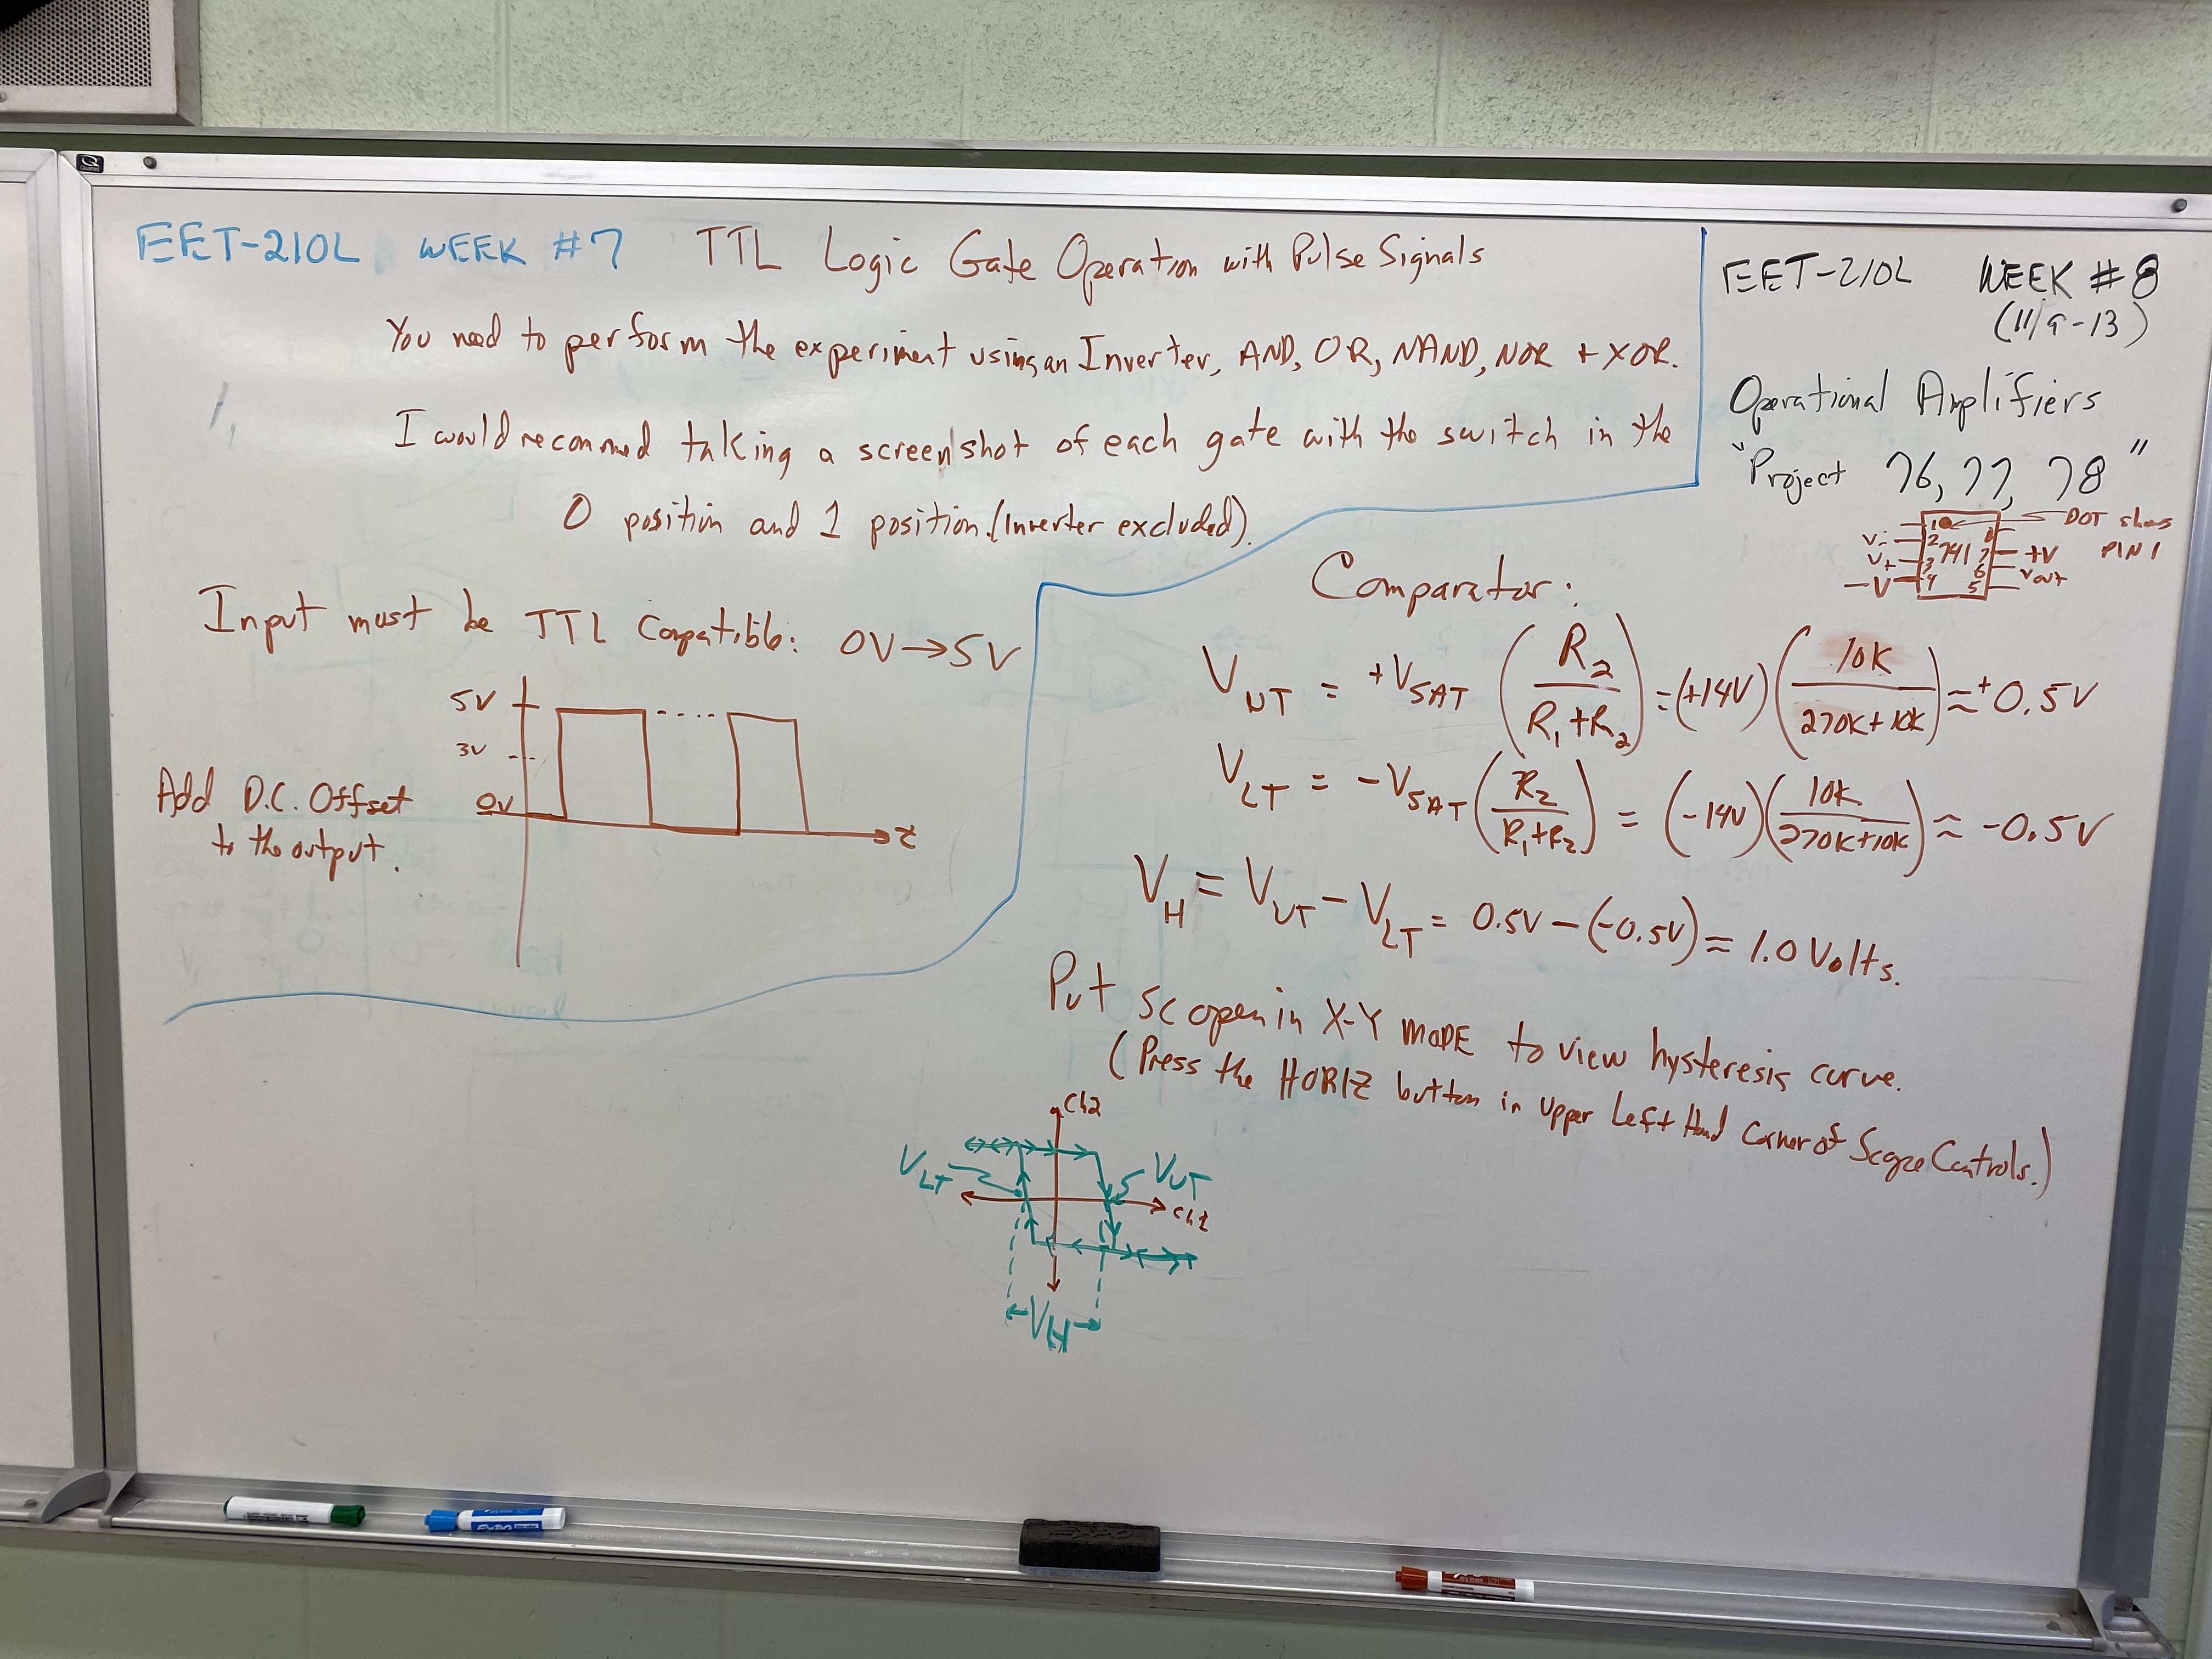 EET-210L WEEK #7 TTL Logic Gate Operation with Pulse Signals
You need to perform the experiment using an Inverter, AND, OR, NAND, NOR + XOR.
I would recommed taking a screenshot of each gate with the switch in the
0 position and 1 position. (Inverter excluded).
Input must be TTL Compatible: 0V → 5V
5V
3V
0V
t
Add D.C. Offset
to the output.
EET-210L WEEK #8
(11/9-13)
Operational Amplifiers
"Project 76, 77, 78"
DOT shows
PIN 1
1 8
V- 2 741 7 +V
V+ 3 6 Vout
-V 4 5
Comparator:
V_UT = +V_SAT (R_2 / (R_1 + R_2)) = (+14V) (10K / (270K + 10K)) ≈ +0.5V
V_LT = -V_SAT (R_2 / (R_1 + R_2)) = (-14V) (10K / (270K + 10K)) ≈ -0.5V
V_H = V_UT - V_LT = 0.5V - (-0.5V) ≈ 1.0 Volts.
Put scope in X-Y MODE to view hysteresis curve.
(Press the HORIZ button in upper Left Hand Corner of Scope Controls.)
Ch2
V_LT
V_UT
Ch1
V_H
EXPO
EXPO